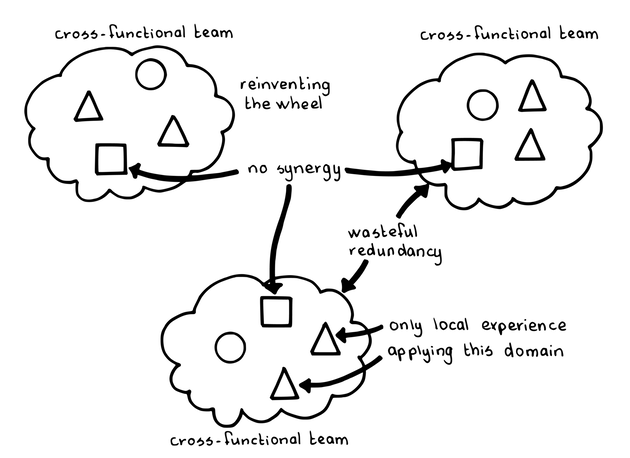 cross-functional team
cross-functional team
reinventing
the wheel
no synergy
wasteful
redundancy
only local experience
applying this domain
cross-functional team